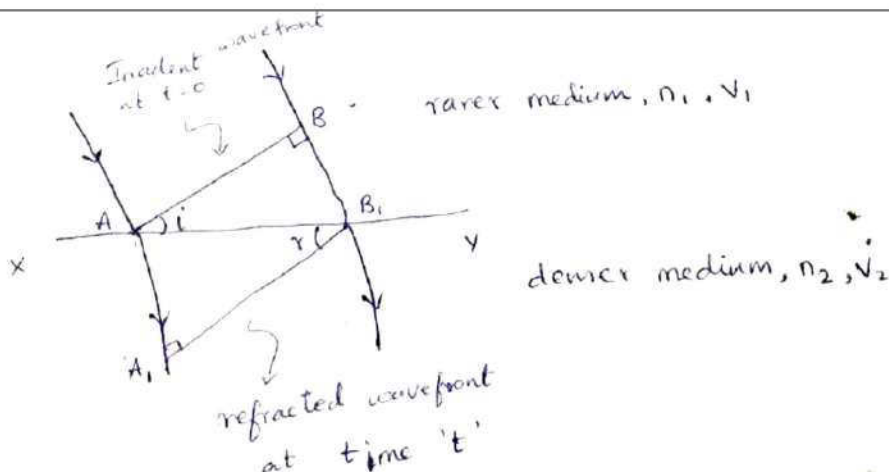 Incident wavefront
at t=0
B
rarer medium, n1, v1
A
i
B1
r
X
Y
denser medium, n2, v2
A1
refracted wavefront
at time 't'